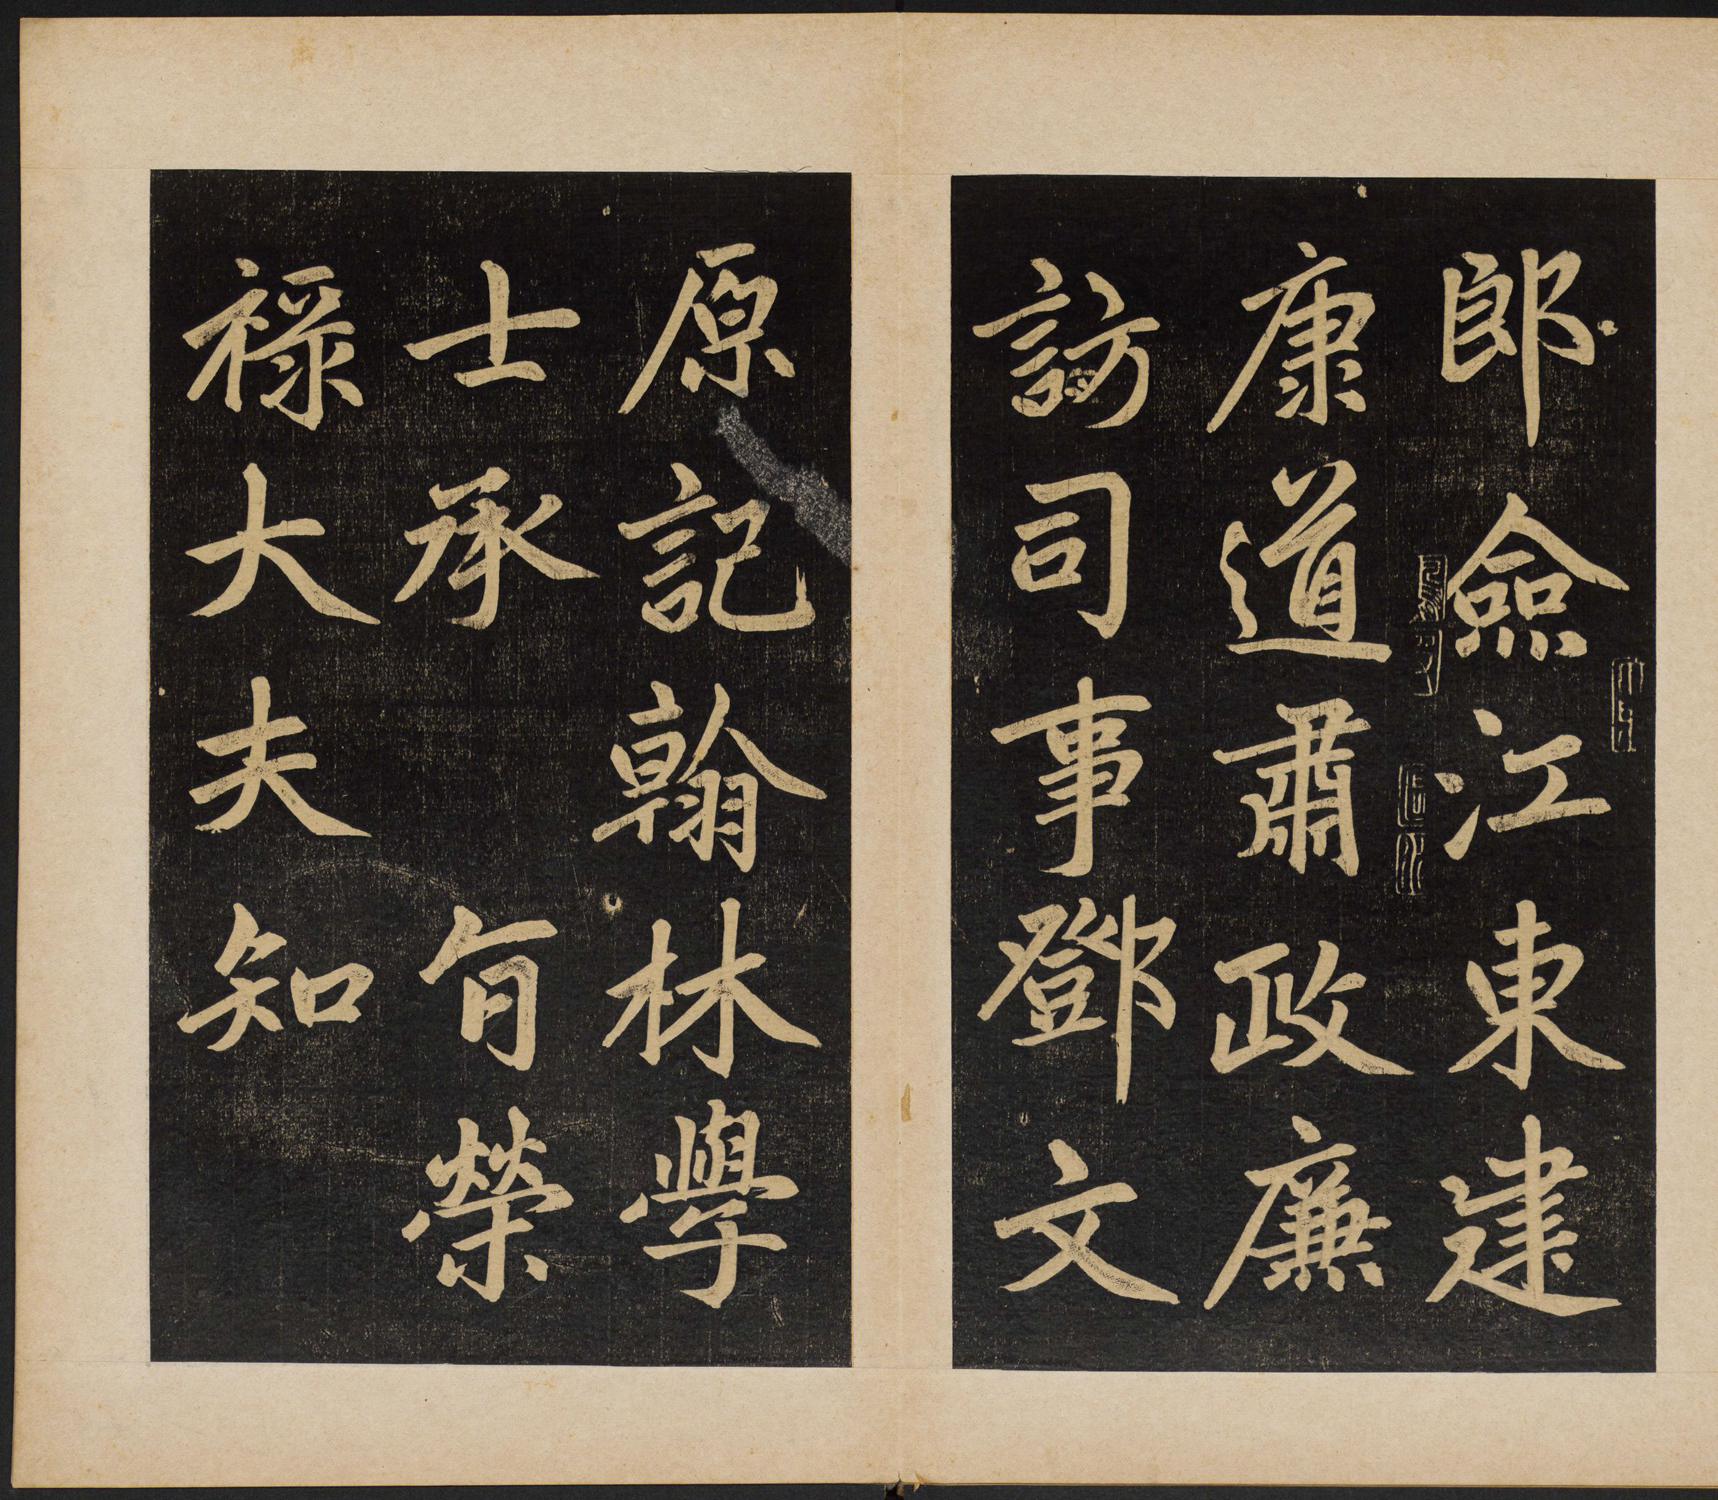 郎僉江東建
康道肅政廉
訪司事鄧文
原記翰林學
士承　旨榮
祿大夫知